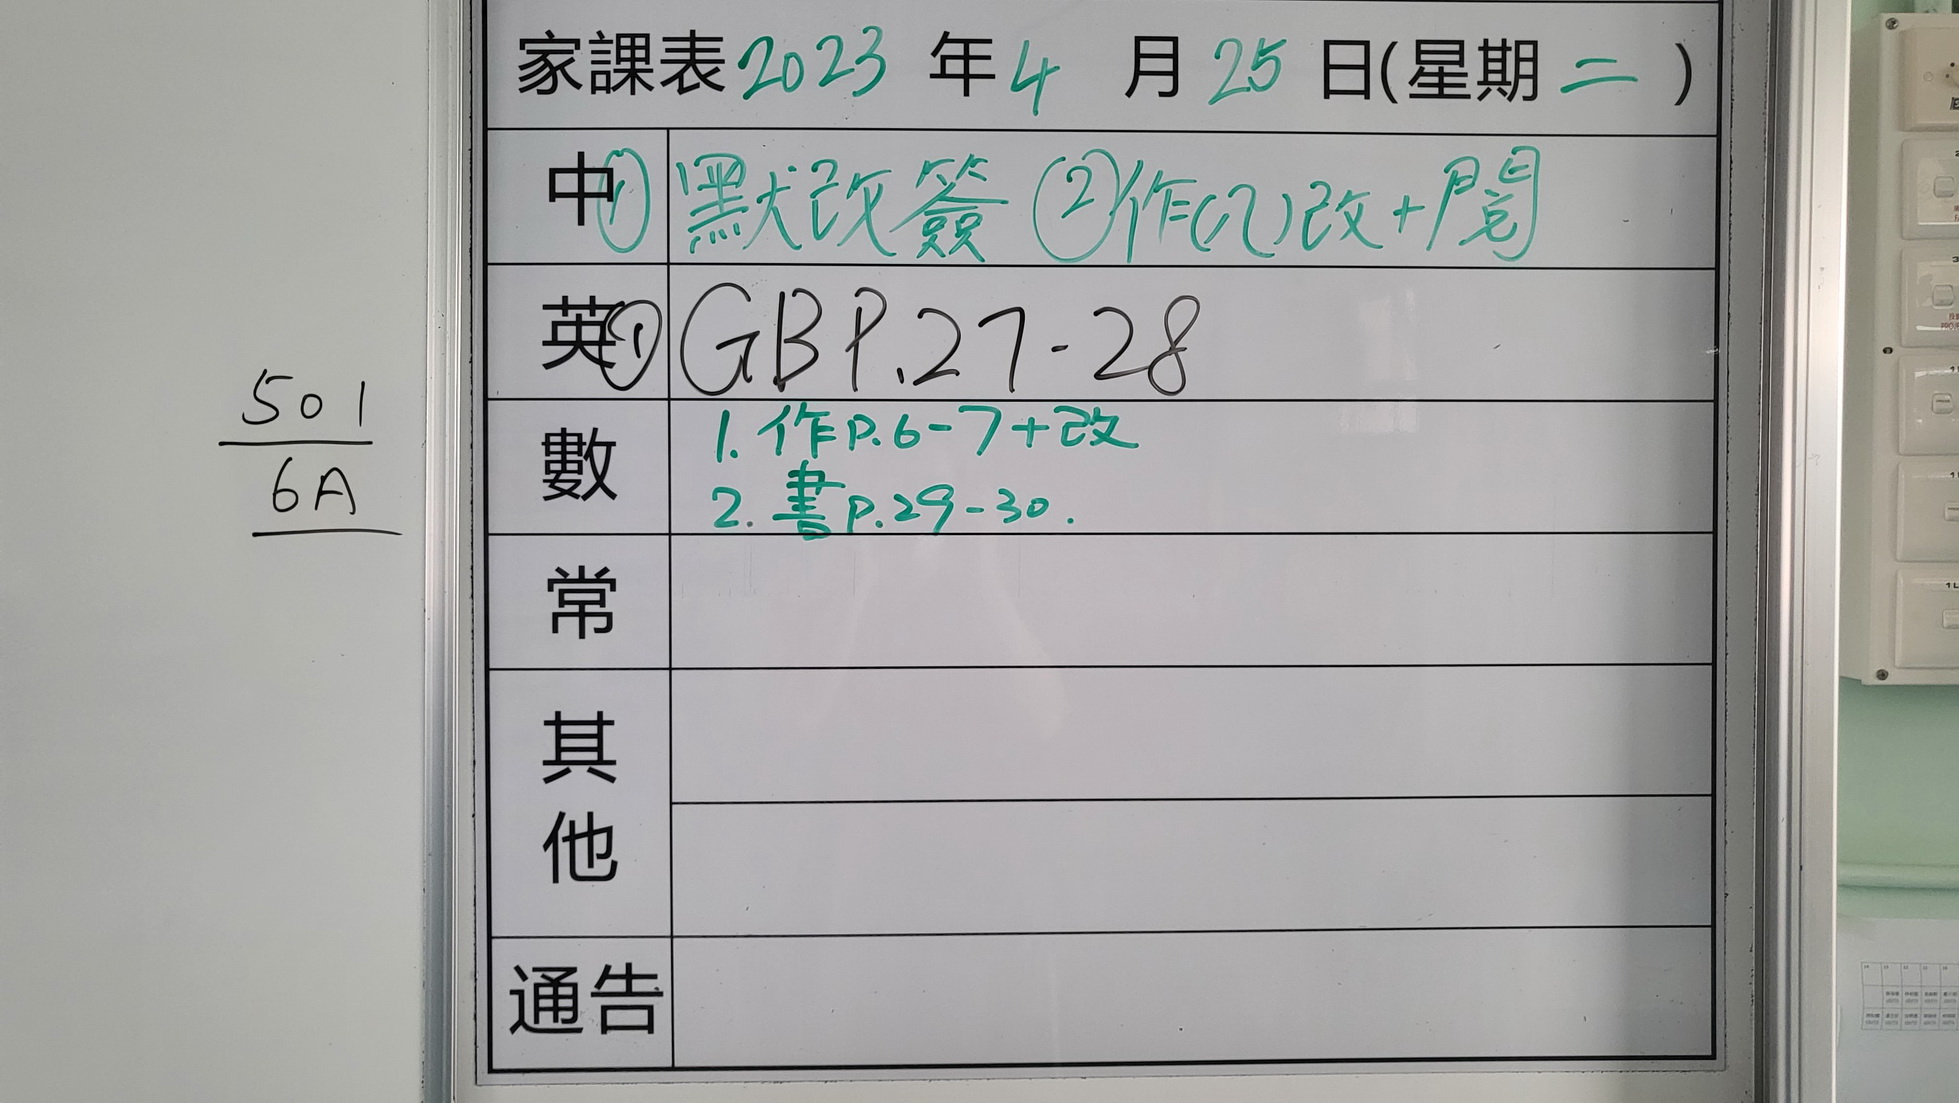 家課表2023年4月25日(星期二)
中①默改簽 ②作(八)改+閱
英①GBP.27-28
數
1. 作P.6-7+改
2. 書P.29-30.
常
其他
通告
501
6A